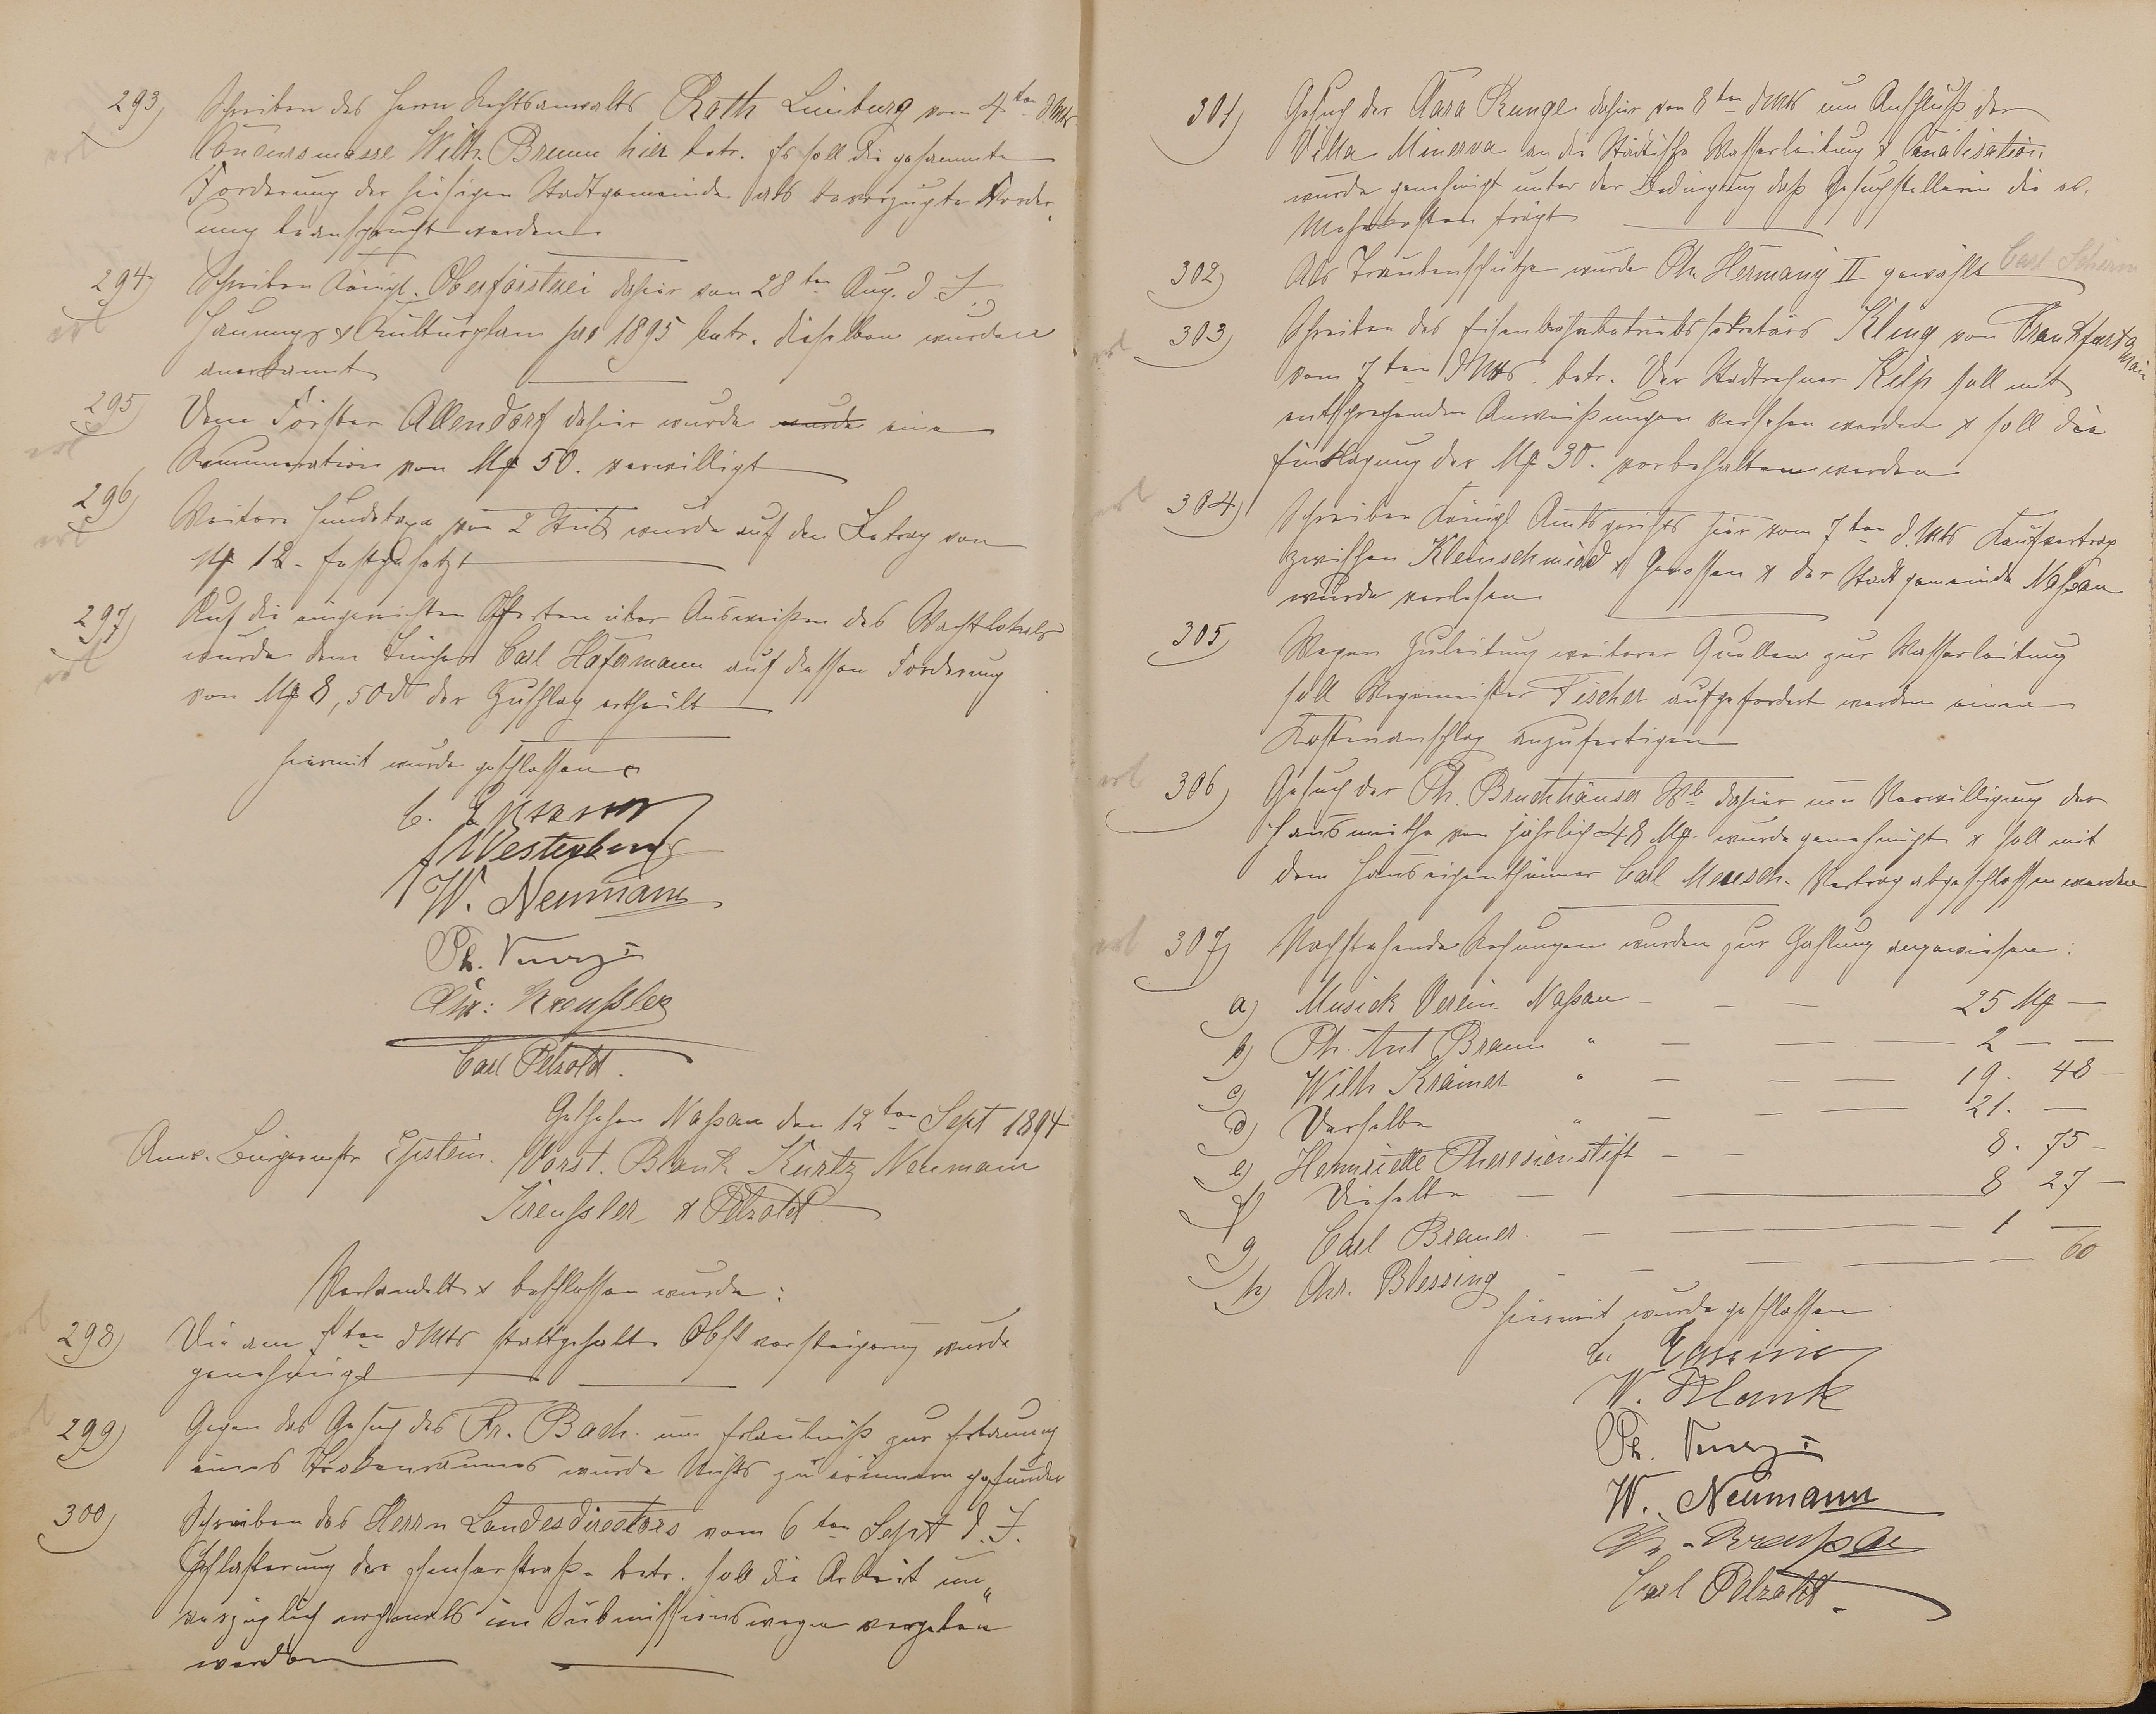 293) Schreiben des Herrn Rechtsanwalts Rath Limburg vom 4ten d. Mts
Concursmasse Wilh. Braun hier betr. Es soll die gesammte
Forderung der hiesigen Stadtgemeinde als bevorzugte Forder-
ung beansprucht werden
erl
294) Schreiben Königl. Oberförsterei dahier vom 28ten Aug. d. J.
Hauungs & Kulturplan pro 1895 betr. dieselben wurden
anerkannt
erl
295) Dem Förster Allendorf dahier wurde wurde eine
Remuneration von Mk 50. verwilligt
erl
296) Weitere Hundetaxe von 2 Stück wurde auf den Betrag von
Mk 12 - festgesetzt
erl
297) Auf die eingereichten Offerten über Ausweißen des Wachtlokals
wurde dem Tüncher Carl Hafermann auf dessen Forderung
von Mk 8,50 der Zuschlag ertheilt
erl
Hiermit wurde geschlossen
C. Epstein
Westerburg
W. Neumann
Ph. Kurz I
Chr: Kreußler
Carl Pelzoldt.
Geschehen Naßau den 12ten Sept 1894
Anw. Bürgermstr Epstein. Vorst. Blank Kurtz Neumann
Kreußler & Petzoldt
Verhandelt & beschlossen wurde:
298) Die am 7ten d Mts stattgehabte Obstversteigerung wurde
genehmigt
299) Gegen das Gesuch des Fr. Bach um Erlaubniß zur Erbauung
eines wurde Nichts zu erinnern gefunden
300) Schreiben des Herrn Landesdirectors vom 6ten Sept d. J.
Pflasterung der straße betr. soll die Arbeit un-
verzüglich nochmals im Submissionswege vergeben
werden
301) Gesuch der Clara Runge dahier vom 8ten d Mts um Anschluß der
Villa Minerva an die Städtische Wasserleitung & Canalisation
wurde genehmigt unter der Bedingung daß Gesuchstellerin die ev.
Mehrkosten trägt
302) Als Traubenschütze wurde Ph. Hermany II gewählt Carl Schirm
303) Schreiben des Eisenbahnbetriebssekretärs Kling von Frankfurt a Main
vom 7ten d Mts. betr. Der Stadtrechner Kilp soll mit
entsprechenden Anweißungen versehen werden & soll die
Einklagung der Mk 30. vorbehalten werden
erl
304) Schreiben Königl Amtsgerichts hier vom 7ten d. Mts Kaufvertrag
zwischen Kleinschmidt & Genossen & der Stadtgemeinde Naßau
wurde verlesen
erl
305) Wegen Zuleitung weiterer Quellen zur Wasserleitung
soll Wegemeister Fischer aufgefordert werden einen
Kostenanschlag anzufertigen
306) Gesuch der Ph. Bruchhäuser Wb dahier um Verwilligung der
Hausmiethe von jährlich 48 Mk wurde genehmigt & soll mit
dem Hauseigenthümer Carl Meusch. Vertrag abgeschlossen werden
erl
307) Nachstehende Rechnungen wurden zur Zahlung angewiesen:
erl
a) Musick Verein Naßau - - - 25 Mk -
b) Ph. Ant Braun " - - - 2 - -
c) Wilh Kramer " - - - 19. 48 -
d) Derselbe " - - - 21. -
e) Henriette Theresienstift - - 8. 75 -
f) Dieselbe - 8 27 -
g) Carl Bremer. - - - 1 -
h) Chr. Blessing - - - - 60
Hiermit wurde geschlossen
C. Epstein
W. Blank
Ph. Kurz I
W. Neumann
Chr. Kreußler
Carl Pelzoldt.